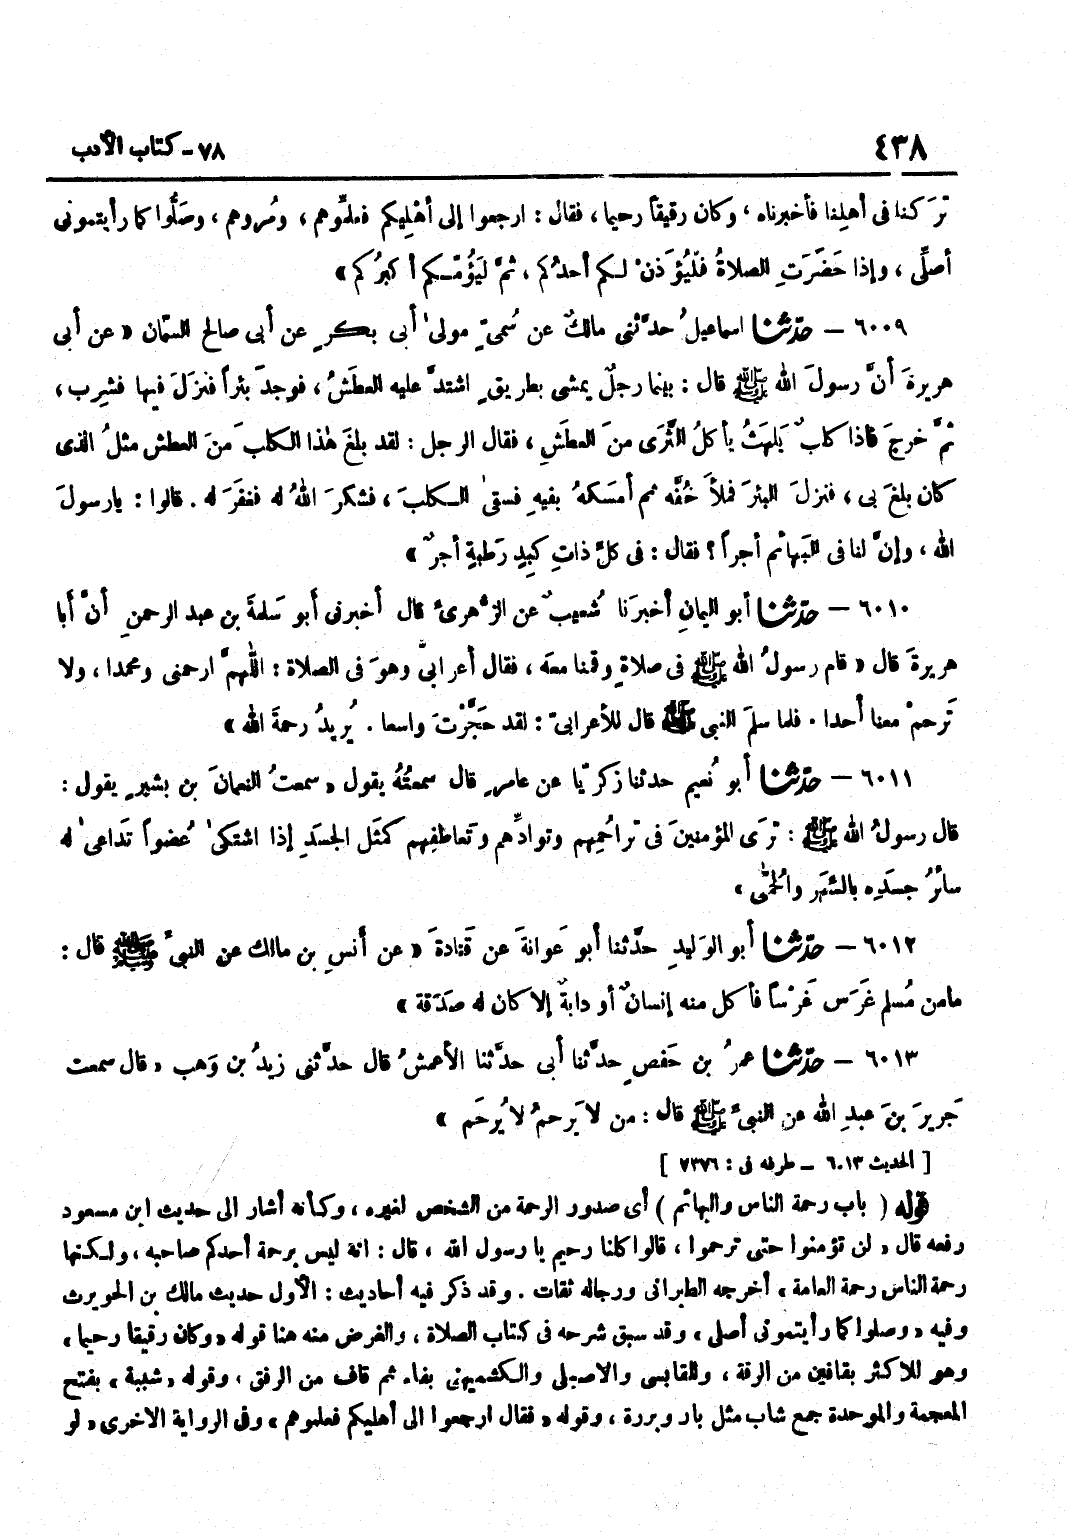 ٤٣٨
٧٨ - كتاب الأدب
تَرَكنا فى أهلِنا فأخبرناه ، وكان رقيقاً رحيما ، فقال : ارجعوا إلى أهْلِيكم فعلِّموهم ، ومُروهم ، وصَلُّوا كما رأيتمونى
أصلِّى ، وإذا حَضَرَتِ الصلاةُ فلْيُؤَذنْ لـكم أحدُكم ، ثمَّ لْيَؤُمَّـكم أكبرُكم »
٦٠٠٩ – حدّثنا اسماعيلُ حدَّثنى مالكٌ عن سُمىّ مولىٰ أبى بكرٍ عن أبى صالح السمّان « عن أبى
هريرةَ أنَّ رسولَ الله ﷺ قال : بينما رجلٌ يمشى بطريقٍ اشتدَّ عليه العطَشُ ، فوجدَ بئراً فنزَلَ فيها فشرِب ،
ثمَّ خرجَ فاذا كلبٌ يَلهَثُ يأكلُ الثَّرَى منَ العطَشِ ، فقال الرجل : لقد بلغَ هٰذا الـكلبَ منَ العطش مثلُ الذى
كان بلغَ بى ، فنزلَ البئرَ فملأَ خُفَّه ثم أمسَكهُ بفيهِ فسقىٰ الـكلبَ ، فشكرَ اللهُ له فغفَرَ له . قالوا : يارسولَ
الله ، وإنَّ لنا فى البهائم أجراً ؟ فقال : فى كلِّ ذاتِ كبِدٍ رَطبةٍ أجرٌ »
٦٠١٠ – حدّثنا أبو اليمانِ أخبرَنا شُعيبٌ عن الزُّهرىِّ قال أخبرنى أبو سَلمةَ بن عبد الرحمنِ أنَّ أبا
هريرةَ قال « قام رسولُ الله ﷺ فى صلاةٍ وقمنا معه ، فقال أعرابىٌّ وهوَ فى الصلاة : اللهُمَّ ارحمنى ومحمدا ، ولا
تَرحمْ معنا أحدا . فلما سلمَ النبى ﷺ قال للأعرابىّ : لقد حَجَّرْتَ واسعا . يُريدُ رحمةَ الله »
٦٠١١ – حدّثنا أبو نُعيم حدثنا زكريّا عن عامرٍ قال سمعتُهُ يقول « سمعتُ النعمانَ بن بشيرٍ يقول :
قال رسولُ الله ﷺ : تَرَى المؤمنينَ فى تراحُمِهم وتوادِّهم وتَعاطفِهم كمثَل الجسَدِ إذا اشتكىٰ عُضواً تَداعىٰ له
سائرُ جسَدِه بالسَّهَر والحُمّى »
٦٠١٢ – حدّثنا أبو الوَليدِ حدَّثنا أبو عَوانةَ عن قَتادةَ « عن أنَسِ بن مالك عن النبىِّ ﷺ قال :
مامن مُسلم غَرَس غَرْساً فأكل منه إنسانٌ أو دابةٌ إلا كان له صَدَقة »
٦٠١٣ – حدّثنا عمرُ بن حَفصٍ حدَّثنا أبى حدَّثنا الأعمشُ قال حدَّثنى زيدُ بن وَهب « قال سمعت
جَريرَ بنَ عبدِ الله عن النبىِّ ﷺ قال : من لا يَرحمُ لا يُرحَم »
[ الحديث ٦٠١٣ – طرفه فى : ٧٣٧٦ ]
قوله ( باب رحمة الناس والبهائم ) أى صدور الرحمة من الشخص لغيره ، وكأنه أشار الى حديث ابن مسعود
رفعه قال « لن تؤمنوا حتى ترحموا ، قالوا كلنا رحيم يا رسول الله ، قال : انه ليس برحمة أحدكم صاحبه ، ولـكنها
رحمة الناس رحمة العامة » أخرجه الطبرانى ورجاله ثقات . وقد ذكر فيه أحاديث : الأول حديث مالك بن الحويرث
وفيه « وصلوا كما رأيتمونى أصلى » وقد سبق شرحه فى كتاب الصلاة ، والغرض منه هنا قوله « وكان رقيقا رحيما »
وهو للاكثر بقافين من الرقة ، وللقابسى والاصيلى والـكشميهنى بفاء ثم قاف من الرفق ، وقوله « شببة » بفتح
المعجمة والموحدة جمع شاب مثل بار وبررة ، وقوله « فقال ارجعوا الى أهليكم فعلموهم » وفى الرواية الاخرى « لو